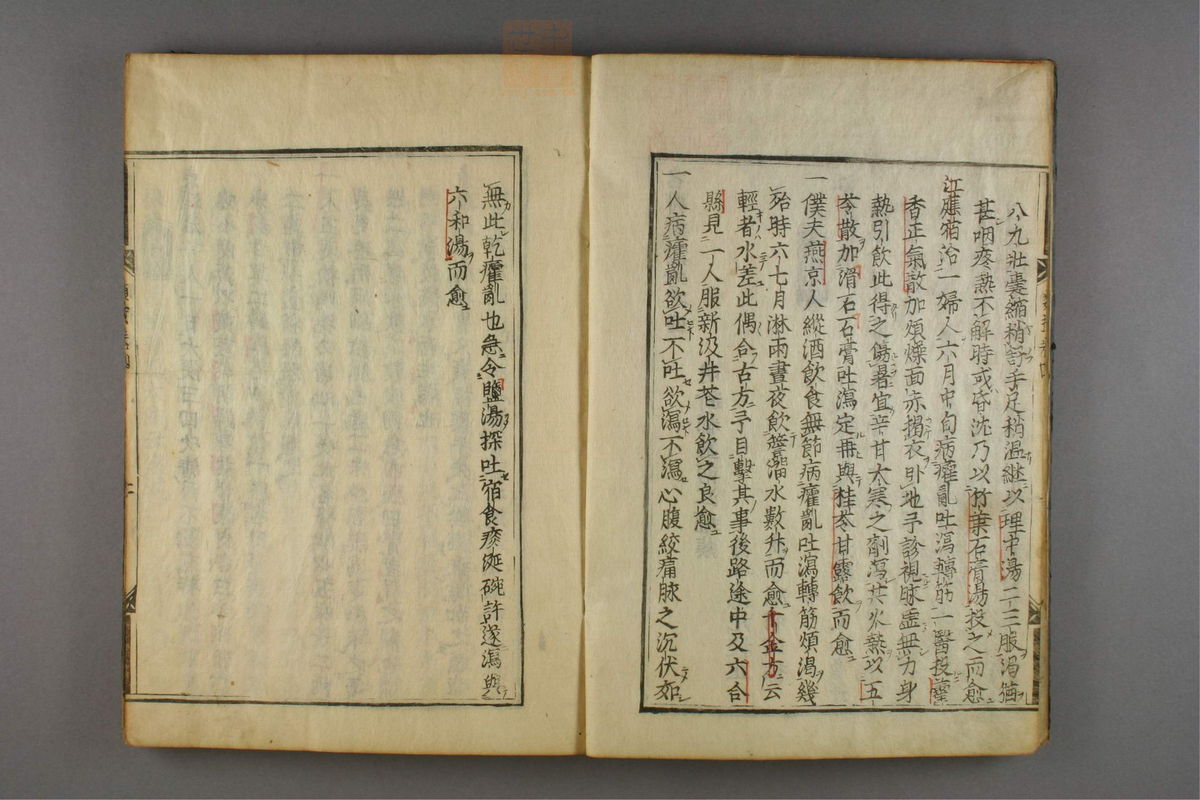 八九壯囊縮稍舒手足稍溫継以理中湯二三服渴猶
甚咽疼熱不解時或昏沈乃以竹葉石膏湯投之而愈
江應宿治一婦人六月中旬病癨亂吐瀉轉筋一醫投藿
香正氣散加煩燥面赤揭衣卧地予診視脉虛無力身
熱引飲此得之傷暑宜辛甘大寒之劑瀉其火熱以五
苓散加滑石石膏吐瀉定再與桂苓甘露飲而愈
一僕夫燕京人縱酒飲食無節病癨亂吐瀉轉筋煩渴幾
殆時六七月淋雨晝夜飲簷溜水數升而愈千金方云
輕者水差此偶合古方予目擊其事後路途中及六合
縣見一人服新汲井花水飲之良愈
一人病癨亂欲吐不吐欲瀉不瀉心腹絞痛脉之沉伏如
無此乾癨亂也急令鹽湯探吐宿食痰涎碗許遂瀉與
六和湯而愈